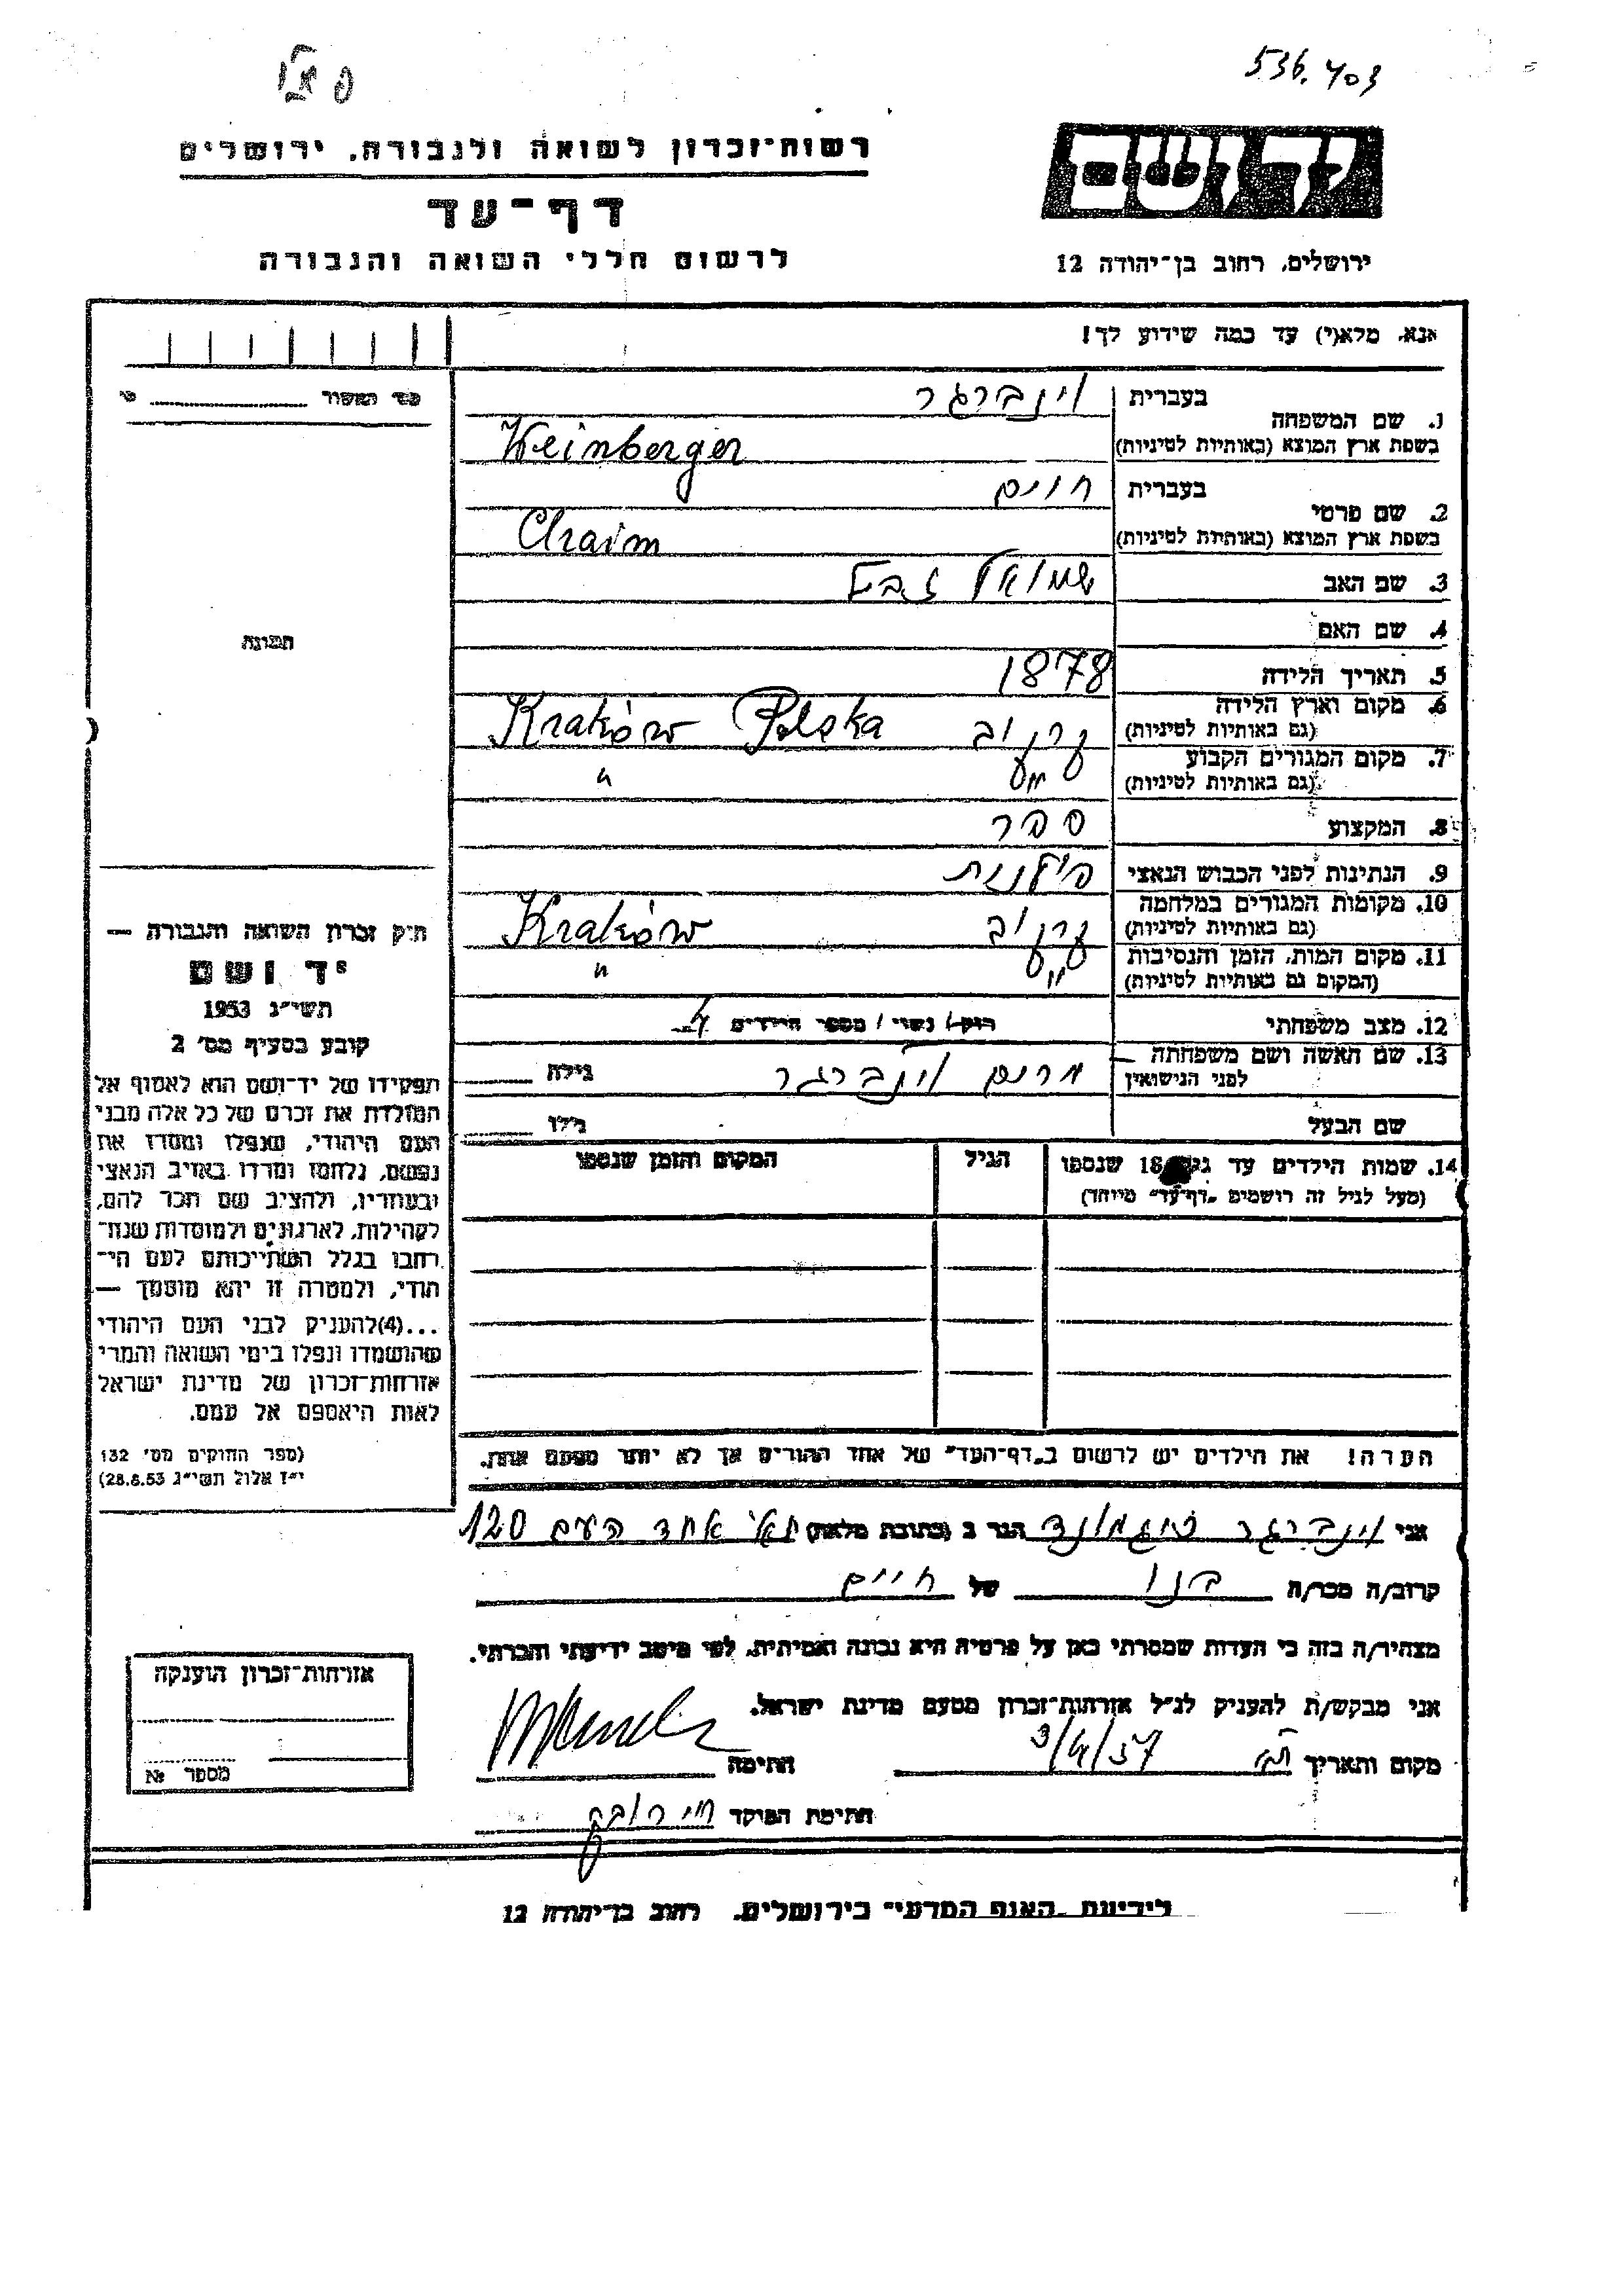 536.403
רשות־זכרון לשואה ולגבורה, ירושלים
יד ושם
דף־עד
לרשום חללי השואה והגבורה
ירושלים, רחוב בן־יהודה 12
אנא, מלא(י) עד כמה שידוע לך!
1. שם המשפחה בעברית וינברגר
בשפת ארץ המוצא (באותיות לטיניות) Weinberger
2. שם פרטי בעברית חיים
בשפת ארץ המוצא (באותיות לטיניות) Chaim
3. שם האב שמואל
4. שם האם
5. תאריך הלידה 1878
6. מקום וארץ הלידה
(גם באותיות לטיניות) קרקוב Kraków Polska
7. מקום המגורים הקבוע
(גם באותיות לטיניות) " "
8. המקצוע ספר
9. הנתינות לפני הכבוש הנאצי פולנית
10. מקומות המגורים במלחמה
(גם באותיות לטיניות) קרקוב Kraków
11. מקום המות, הזמן והנסיבות
(המקום גם באותיות לטיניות) " "
12. מצב משפחתי רווק / נשוי / מספר הילדים
13. שם האשה ושם משפחתה
לפני הנישואין מרים וינברגר גילה
שם הבעל גילו
14. שמות הילדים עד גיל 18 שנספו הגיל המקום והזמן שנספו
(מעל לגיל זה רושמים "דף־עד" מיוחד)
הערה! את הילדים יש לרשום ב"דף־העד" של אחד ההורים אך לא יותר מפעם אחת.
אני וינברגר זיגמונד הגר ב (כתובת מלאה) ת"א אחד העם 120
קרוב/ה מכר/ה בנו של חיים
מצהיר/ה בזה כי העדות שמסרתי כאן על פרטיה היא נכונה ואמיתית, לפי מיטב ידיעתי והכרתי.
אני מבקש/ת להעניק לנ"ל אזרחות־זכרון מטעם מדינת ישראל.
מקום ותאריך ת"א 3/4/57 חתימה
חתימת הפוקד
מס' האשור
תמונה
חוק זכרון השואה והגבורה —
יד ושם
תשי"ג 1953
קובע בסעיף מס' 2
תפקידו של יד־ושם הוא לאסוף אל
המולדת את זכרם של כל אלה מבני
העם היהודי, שנפלו ומסרו את
נפשם, נלחמו ומרדו באויב הנאצי
ובעוזריו, ולהציב שם וזכר להם,
לקהילות, לארגונים ולמוסדות שנח־
רבו בגלל השתייכותם לעם הי־
הודי, ולמטרה זו יהא מוסמך —
...(4)להעניק לבני העם היהודי
שהושמדו ונפלו בימי השואה והמרי
אזרחות־זכרון של מדינת ישראל
לאות היאספם אל עמם.
(ספר החוקים מס' 132
י"ז אלול תשי"ג 28.8.53)
אזרחות־זכרון הוענקה
מספר №
לידיעת האגף המדעי בירושלים, רחוב בן־יהודה 12